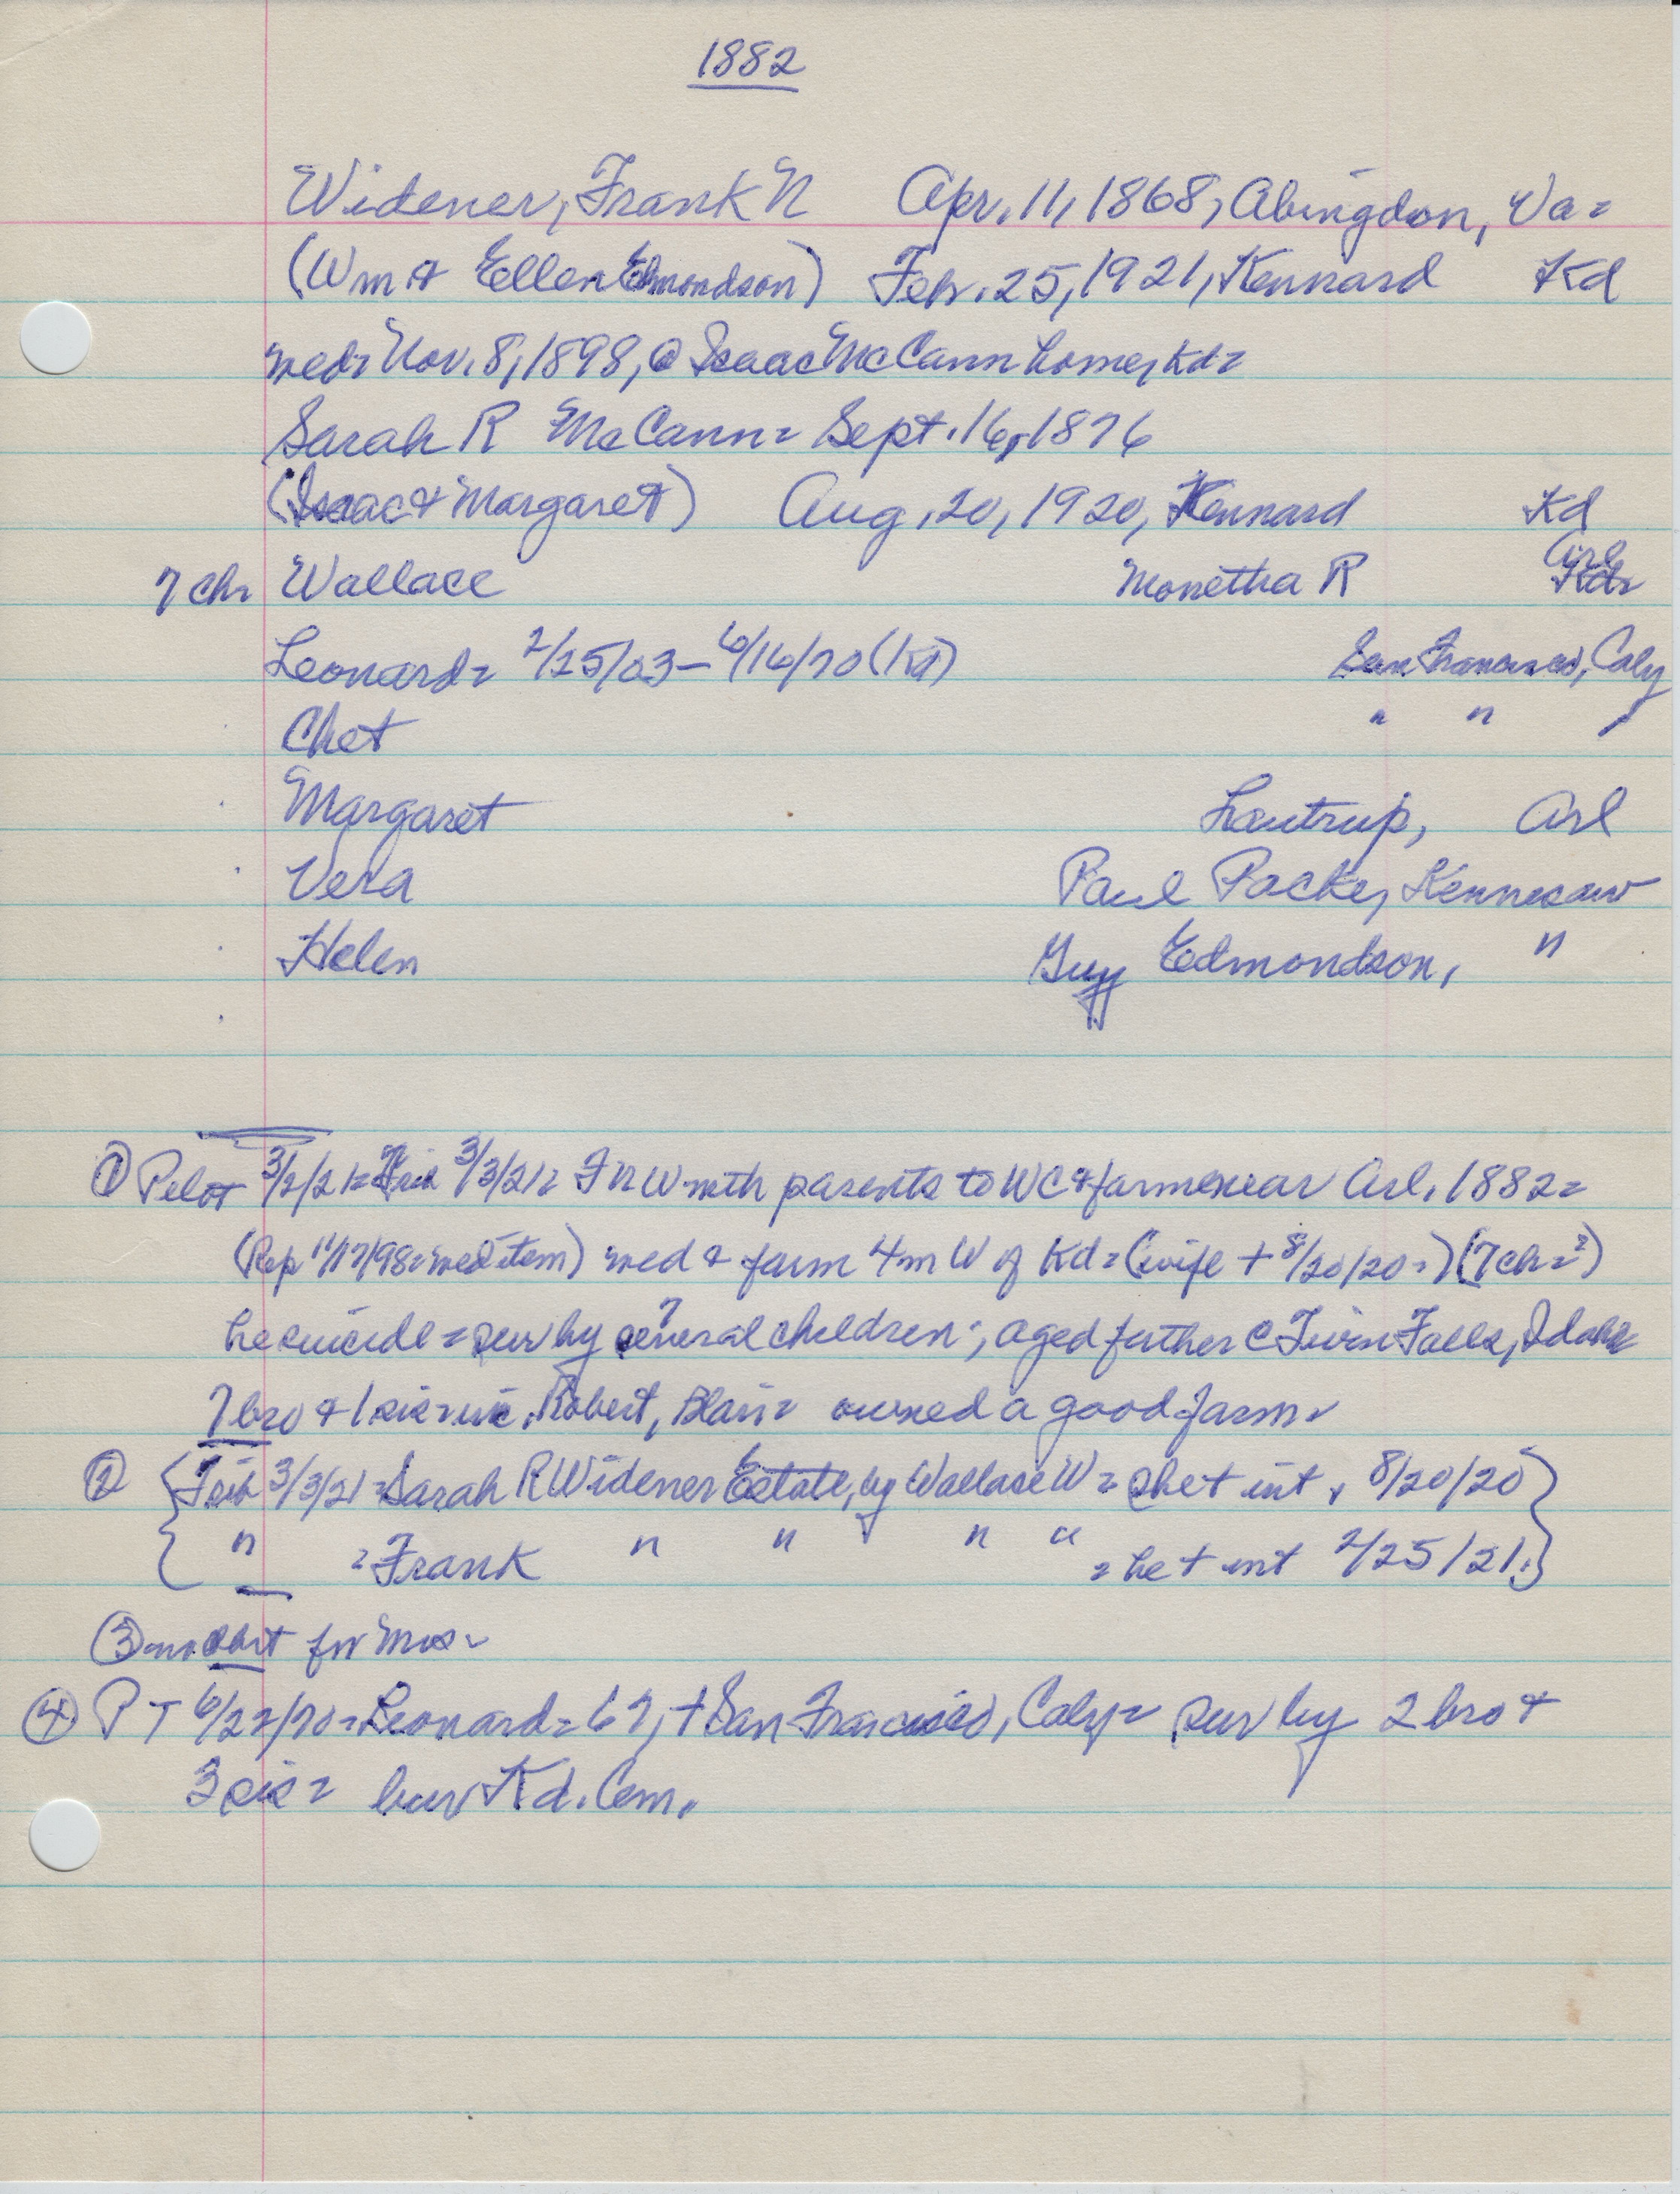 1882
Widener, Frank N Apr. 11, 1868, Abingdon, Va =
(Wm & Ellen Edmondson) Feb. 25, 1921, Kennard Kd
wed = Nov. 8, 1898, @ Isaac McCann home, Kd =
Sarah R McCann = Sept. 16, 1876
(Isaac & Margaret) Aug. 20, 1920, Kennard Kd
Arl
7 ch = Wallace Monetha R Kd =
Leonard = 2/25/03 - 6/16/70 (Kd) San Francisco, Calif
Chet " " "
Margaret Lautrup, Arl
Vera Paul Packer, Kennesaw
Helen Guy Edmondson, "
① Pilot 3/2/21 = Trib 3/3/21 = FNW with parents to WC & farm near Arl. 1882 =
(Rep 11/17/98 = wed item) wed & farm 4m W of Kd = (wife + 8/20/20 =) (7 ch = ?)
he suicide = sur by several children ; aged father @ Twin Falls, Idaho
7 bro & 1 sis = inc. Robert, Blair = owned a good farm =
② { Trib 3/3/21 = Sarah R Widener Estate, by Wallace W = she + int. 8/20/20 }
{ " = Frank " " " " = he + int 2/25/21. }
③ no obit for Mrs =
④ PT 6/22/70 = Leonard = 67, + San Francisco, Calif = sur by 2 bro &
3 sis = bur Kd. Cem.